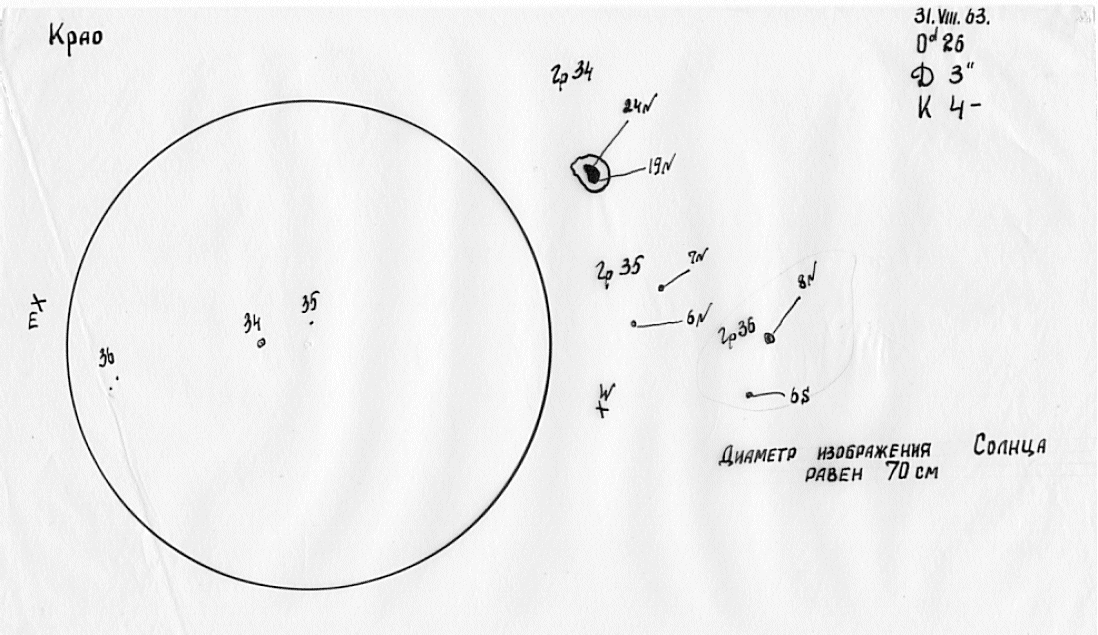 Крао
31.VIII.63.
0ᵈ 26
Д 3"
К 4-
Гр 34
24N
19N
Гр 35
7N
6N
Гр 36
8N
6S
35
34
36
E
W
Диаметр изображения Солнца
равен 70 см